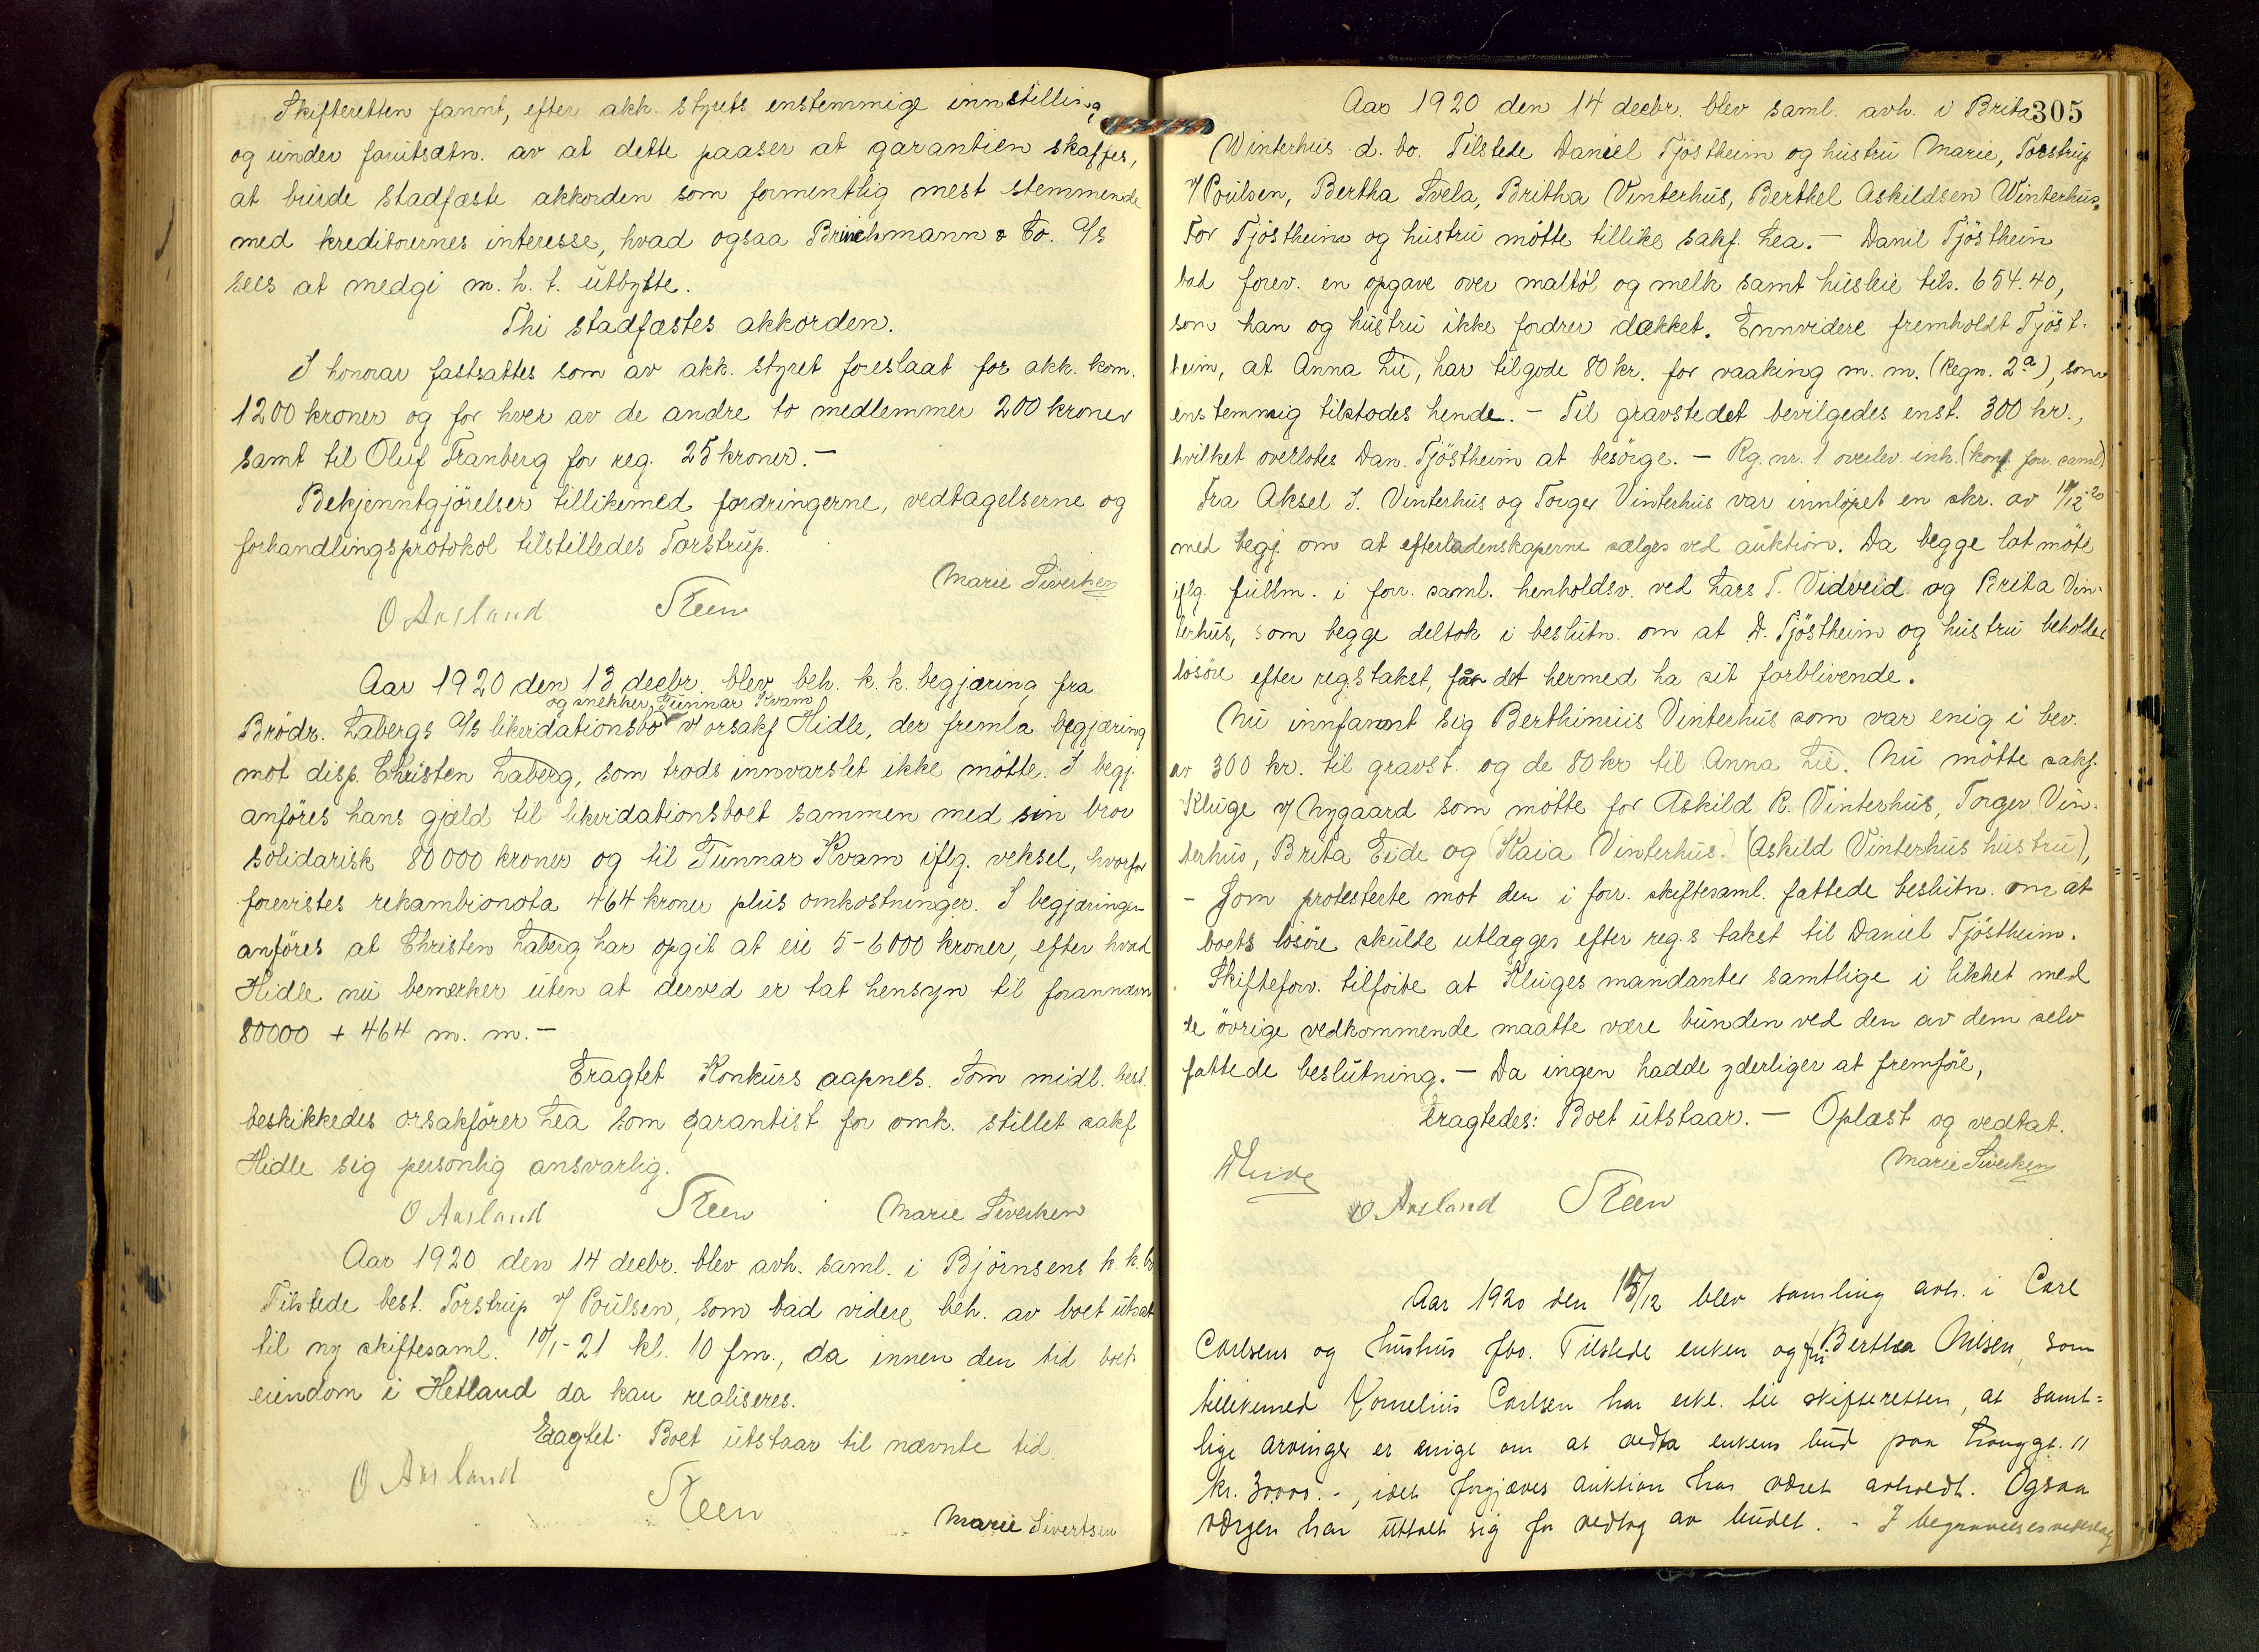 Skifteretten fannt, efter akk. styrets enstemmige innstilling
og under forutsætn. av at dette paaser at garantien skaffes,
at burde stadfæste akkorden som formentlig mest stemmende
med kreditorernes interesse, hvad ogsaa Brinckmann & Co. A/s
sees at medgi m. h. t. utbytte.
Thi stadfæstes akkorden.
I honorar fastsattes som av akk. styret foreslaat for akk. kom.
1200 kroner og for hver av de andre to medlemmer 200 kroner
samt til Oluf Tranberg for reg. 25 kroner. -
Bekjenntgjörelser tillikemed fordringerne, vedtagelserne og
forhandlingsprotokol tilstilledes Torstrup.
Marie Sivertsen
O Aasland Steen
Aar 1920 den 13 decbr. blev beh. k. k. begjæring fra
og snekker Gunnar Kvam
Brödr. Labergs A/s likvidationsbo v/ orsakf Hidle, der fremla begjæring
mot disp. Christen Laberg, som trods innvarslet ikke mötte. I begj.
anföres hans gjæld til likvidationsboet sammen med sin bror
solidarisk 80000 kroner og til Gunnar Kvam iflg. veksel, hvorfor
forevistes rekambionota 464 kroner plus omkostninger. I begjæringen
anföres at Christen Laberg har opgit at eie 5-6000 kroner, efter hvad
Hidle nu bemerker uten at derved er tat hensyn til forannævn
80000 + 464 m. m. -
Eragtet Konkurs aapnes. Som midl. best.
beskikkedes orsakförer Lea som garantist for omk. stillet sakf
Hidle sig personlig ansvarlig.
O Aasland Steen Marie Sivertsen
Aar 1920 den 14 decbr. blev avh. saml. i Björnsens k. k. bo
Tilstede best. Torstrup v/ Poulsen, som bad videre beh. av boet utsat
til ny skiftesaml. 10/1-21 kl. 10 fm., da innen den tid boets
eiendom i Hetland da kan realiseres.
Eragtet: Boet utstaar til nævnte tid.
O Aasland
Steen
Marie Sivertsen
305
Aar 1920 den 14 decbr. blev saml. avh. i Brita
Winterhus d. bo. Tilstede Daniel Tjöstheim og hustru Marie, Torstrup
v/ Poulsen, Bertha Tvela, Britha Vinterhus, Berthel Askildsen Winterhus.
For Tjöstheim og hustru mötte tillike sakf. Lea. - Danil Tjöstheim
bad forev. en opgave over maltöl og melk samt husleie tils. 654.40,
som han og hustru ikke fordrer dækket. Ennvidere fremholdt Tjöst-
heim, at Anna Lie, har tilgode 80 kr. for vaaking m. m. (Regn. 2a), som
enstemmig tilstodes hende. - Til gravstedet bevilgedes enst. 300 kr.,
hvilket overlotes Dan. Tjöstheim at besörge. - Rg. nr. 1 overlev. inh. (konf. forr. saml)
Fra Aksel I. Vinterhus og Torger Vinterhus var innlöpet en skr. av 10/12-20
med begj. om at efterladenskaperne sælges ved auktion. Da begge lot möte
iflg. fullm. i forr. saml. henholdsv. ved Lars T. Vidveid og Brita Vin-
terhus, som begge deltok i beslutn. om at D. Tjöstheim og hustru beholder
lösöre efter reg.s takst, får det hermed ha sit forblivende.
Nu innfannt sig Berthinius Vinterhus som var enig i bev.
av 300 kr. til gravst. og de 80 kr til Anna Lie. Nu mötte sakf.
Kluge v/ Nygaard som mötte for Askild R. Vinterhus, Torger Vin-
terhus, Brita Eide og Kaia Vinterhus. (Askild Vinterhus hustru),
- Som protesterte mot den i forr. skiftesaml. fattede beslutn. om at
boets lösöre skulde utlægges efter reg.s takst til Daniel Tjöstheim.
Skifteforv. tilföite at Kluges mandanter samtlige i likhet med
de övrige vedkommende maatte være bunden ved den av dem selv
fattede beslutning. - Da ingen hadde yderliger at fremföre,
Eragtedes: Boet utstaar. - Oplæst og vedtat.
Marie Sivertsen
O Aasland Steen
Aar 1920 den 15/12 blev samling avh. i Carl
Carlsens og hustrus fbo. Tilstede enken og fru Berthea Nilsen, som
tillikemed Kornelius Carlsen har erkl. til skifteretten, at samt-
lige arvinger er enige om at vedta enkens bud paa Langgt. 11
kr. 30000.-, idet forgjæves auktion har været avholdt. Ogsaa
værgen har uttalt sig for vedtag av budet. - I begravelsesvederlag